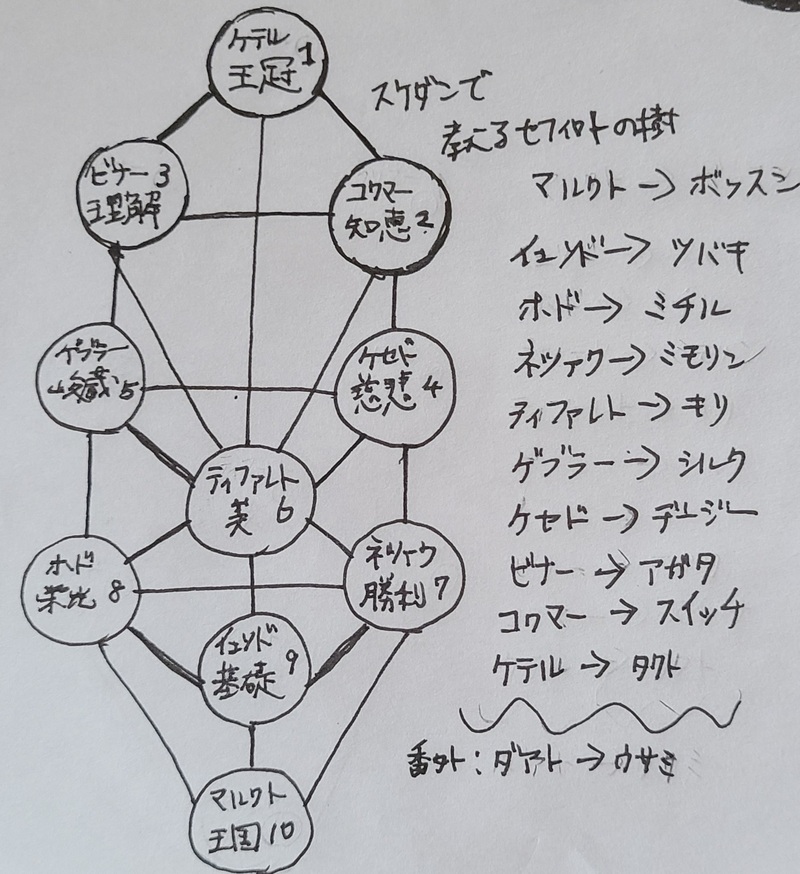 ケテル
王冠 1
スケダンで
教えるセフィロトの樹
ビナー 3
理解
コクマー
知恵 2
マルクト→ボッスン
イェソド→ツバキ
ホド→ミチル
ネツァク→ミモリン
ティファレト→キリ
ゲブラー→シルク
ケセド→デージー
ビナー→アガタ
コクマー→スイッチ
ケテル→タクト
番外:ダアト→ウサミ
ゲブラー
峻厳 5
ケセド
慈悲 4
ティファレト
美 6
ホド
栄光 8
ネツァク
勝利 7
イェソド
基礎 9
マルクト
王国 10